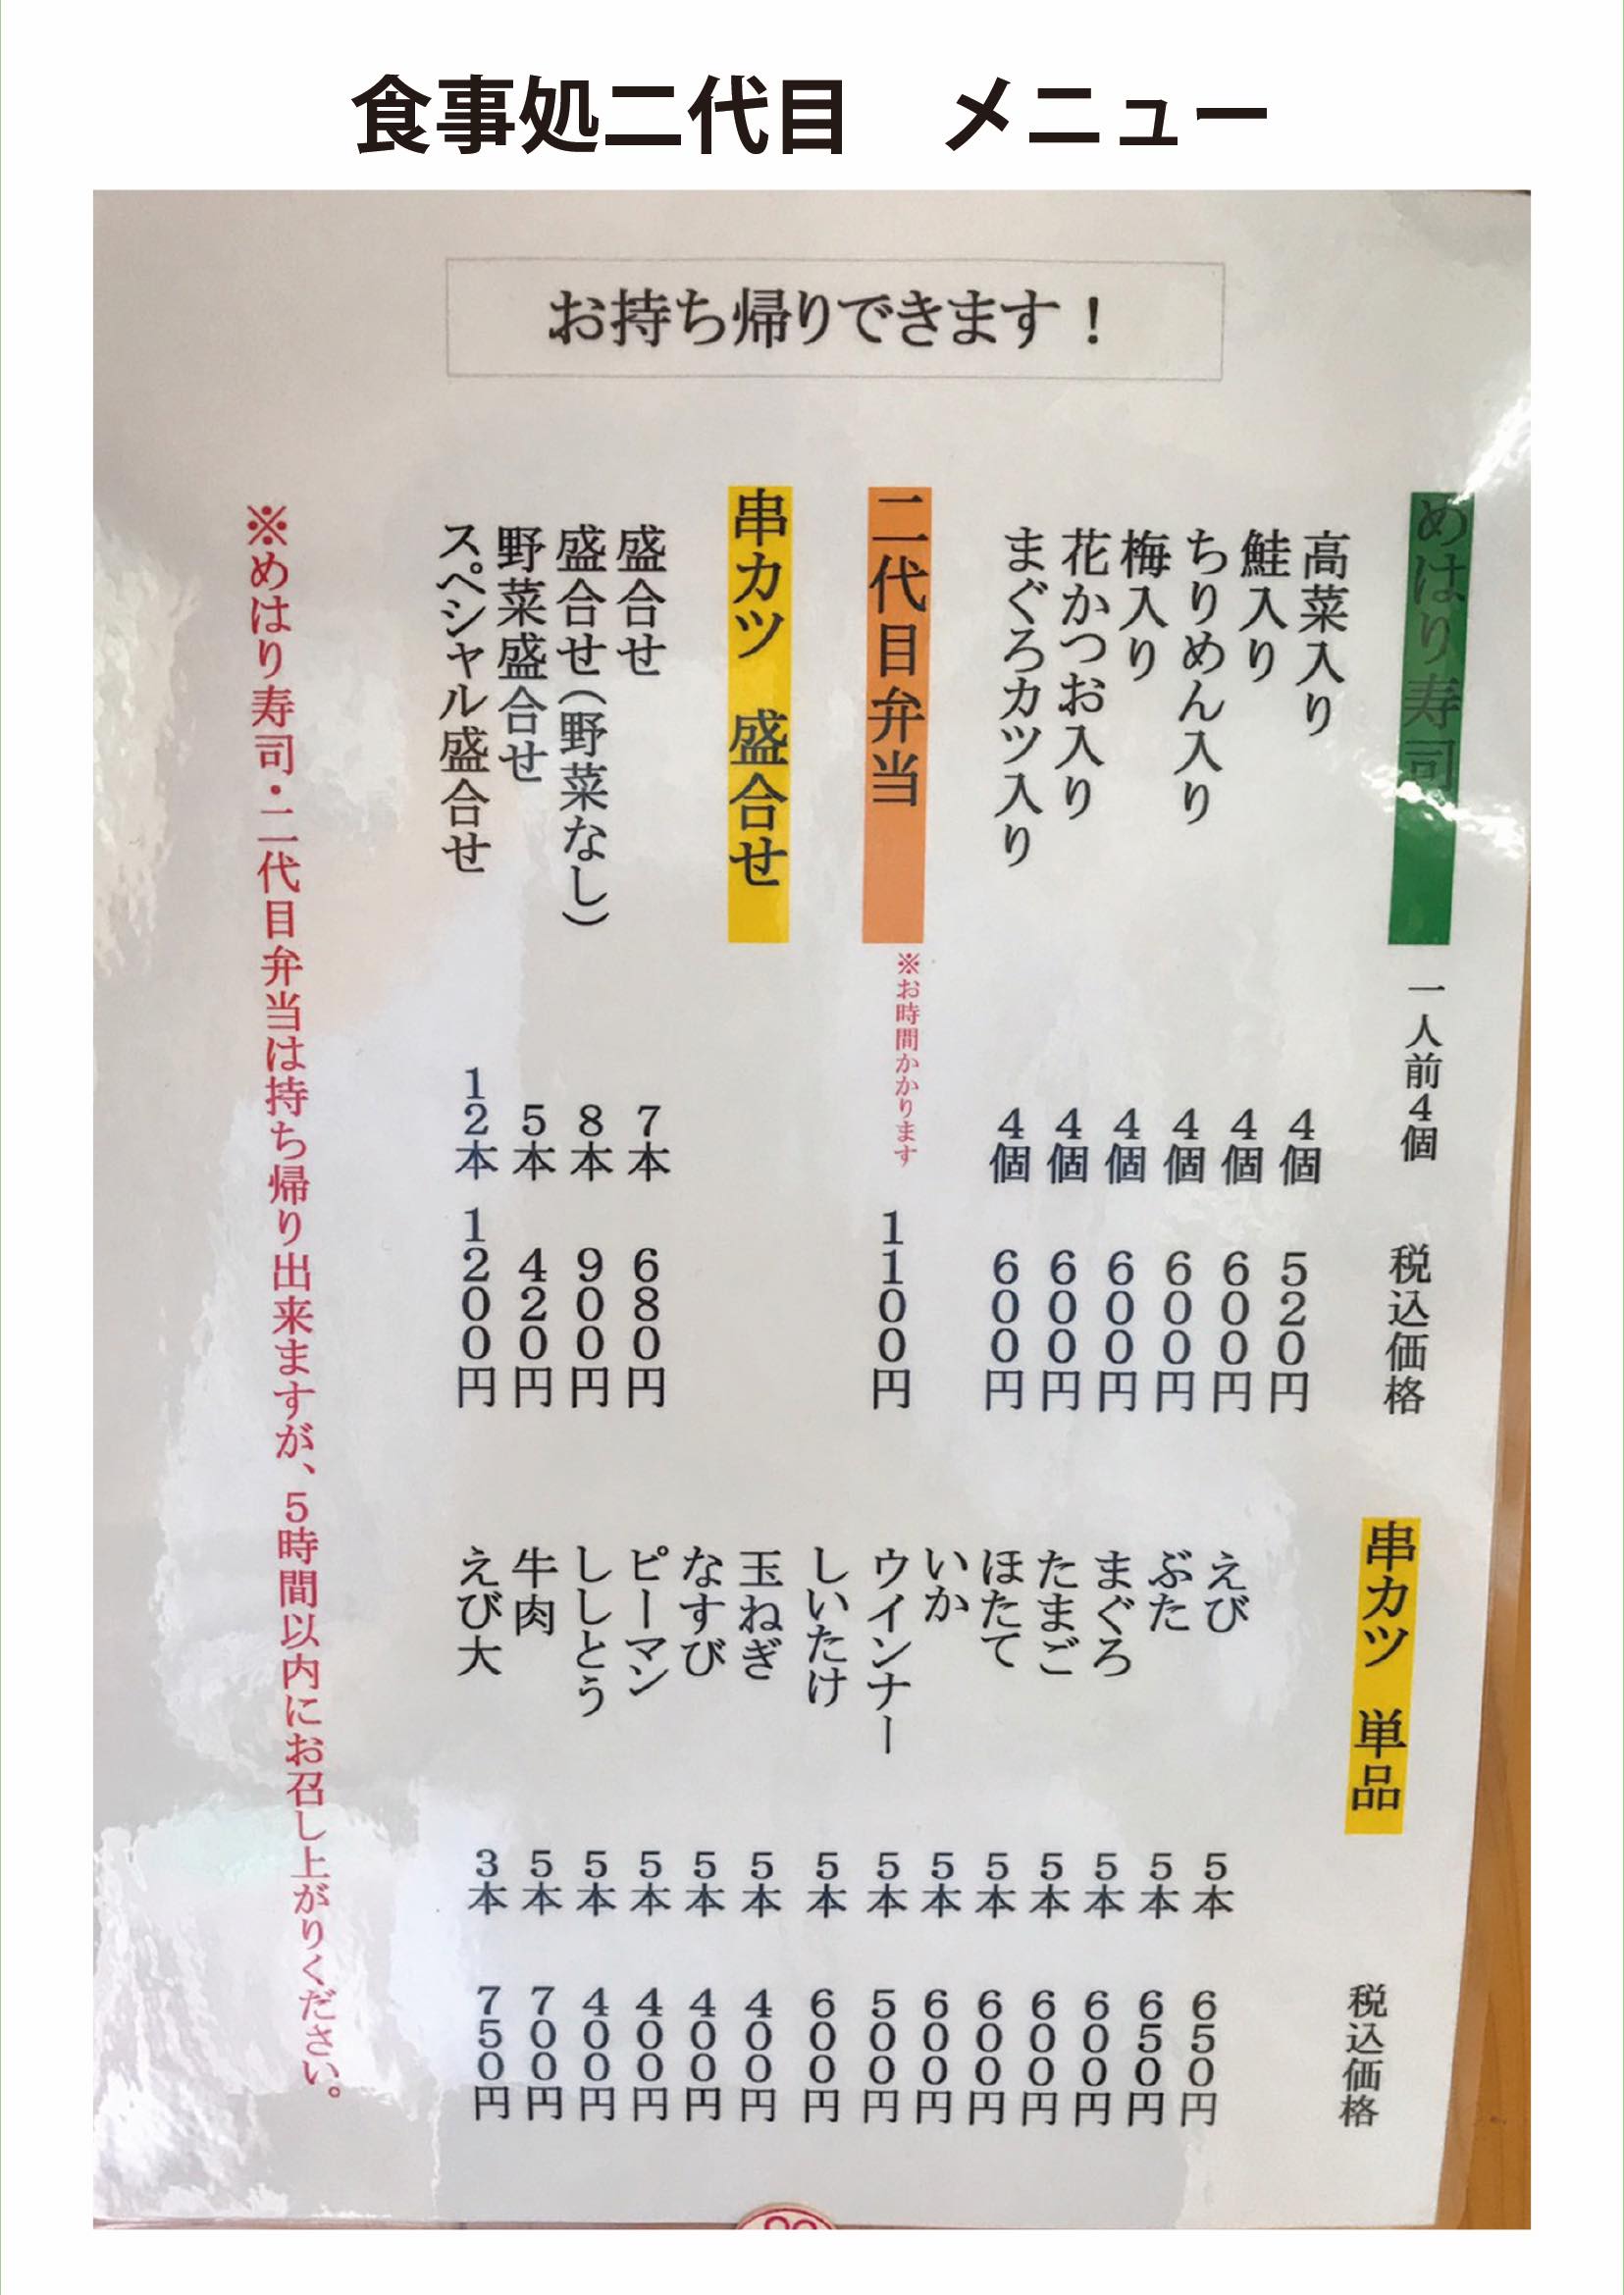 食事処二代目　メニュー
お持ち帰りできます！
めはり寿司　一人前４個　税込価格
高菜入り　４個　５２０円
鮭入り　４個　６００円
ちりめん入り　４個　６００円
梅入り　４個　６００円
花かつお入り　４個　６００円
まぐろカツ入り　４個　６００円
二代目弁当　※お時間かかります　１１００円
串カツ　盛合せ
盛合せ　７本　６８０円
盛合せ（野菜なし）　８本　９００円
野菜盛合せ　５本　４２０円
スペシャル盛合せ　１２本　１２００円
串カツ　単品　税込価格
えび　５本　６５０円
ぶた　５本　６５０円
まぐろ　５本　６００円
たまご　５本　６００円
ほたて　５本　６００円
いか　５本　６００円
ウインナー　５本　５００円
しいたけ　５本　６００円
玉ねぎ　５本　４００円
なすび　５本　４００円
ピーマン　５本　４００円
ししとう　５本　４００円
牛肉　５本　７００円
えび大　３本　７５０円
※めはり寿司・二代目弁当は持ち帰り出来ますが、５時間以内にお召し上がりください。